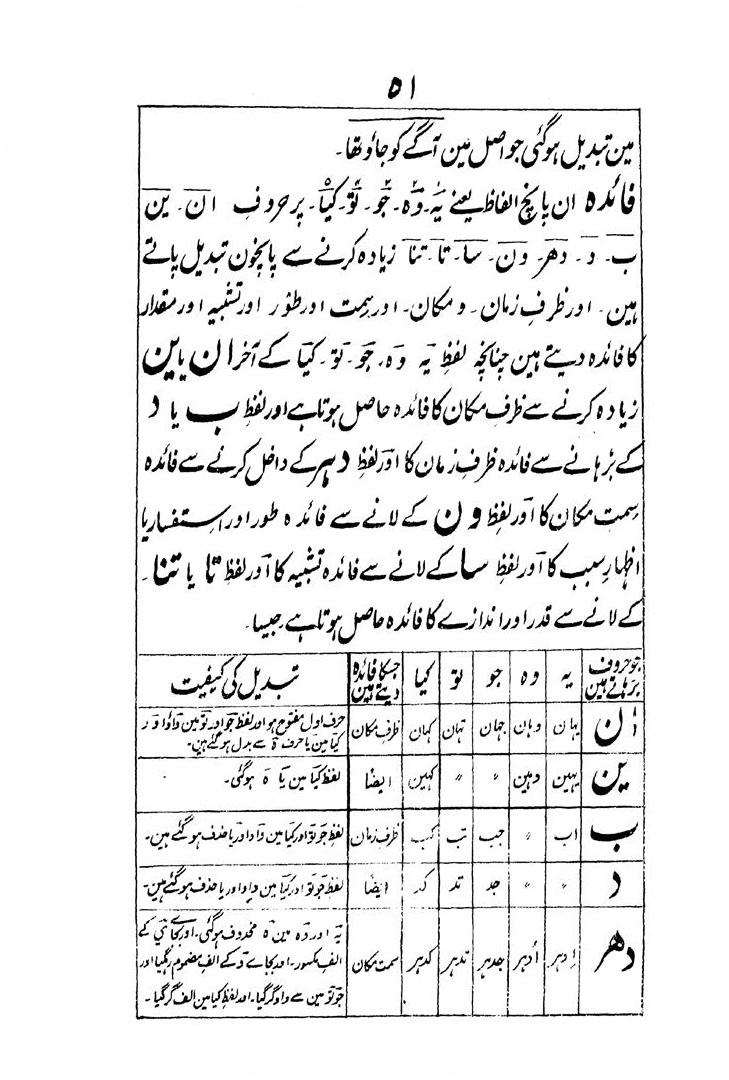 ۵۱
مین تبدیل ہوگئی جو اصل مین آگے کو جاؤ تھا۔
فائدہ ان پانچ الفاظ یعنے یہ۔ وہ۔ جو۔ تو۔ کیا۔ پر حروف ان۔ ین
ب۔ د۔ دھر۔ ون۔ سا۔ تا۔ تنا زیادہ کرنے سے پانچون تبدیل پاتے
ہین۔ اور ظرف زمان۔ و مکان۔ اور سمت اور طور اور تشبیہ اور مقدار
کا فائدہ دیتے ہین چنانچہ لفظ یہ وہ۔ جو۔ تو۔ کیا کے آخر ان یا ین
زیادہ کرنے سے ظرف مکان کا فائدہ حاصل ہوتا ہے اور لفظ ب یا د
کے بڑہانے سے فائدہ ظرف زمان کا اور لفظ دہر کے داخل کرنے سے فائدہ
سمت مکان کا اور لفظ ون کے لانے سے فائدہ طور اور استفسار یا
اظہار سبب کا اور لفظ سا کے لانے سے فائدہ تشبیہ کا اور لفظ تا یا تنا۔
کے لانے سے قدر اور اندازے کا فائدہ حاصل ہوتا ہے۔ جیسا۔
جو حروف بڑہاتے ہین یہ وہ جو تو کیا جسکا فائدہ دیتے ہین تبدیل کی کیفیت
ان یہان وہان جہان تہان کہان ظرف مکان حرف اول مفتوح ہو اور لفظ جو اور تو مین واؤ اور
کیا مین یا حرف ہ سے بدل ہوگئے ہین۔
ین یہین وہین " " کہین ایضا لفظ کیا مین یا ہ ہوگی۔
ب اب " جب تب کب ظرف زمان لفظ جو تو اور کیا مین واو اور یا حذف ہوگئے ہین۔
د " " جد تد کد ایضا لفظ جو تو اور کیا مین واو اور یا حذف ہوگئے ہین۔
دھر اِدہر اُدہر جدہر تدہر کدہر سمت مکان یہ اور وہ مین ہ محذوف ہوگئی۔ اور بجاے ی کے
الف مکسور۔ اور بجاے و کے الف مضموم رہگیا اور
جو تو مین سے واو گرگیا۔ اور لفظ کیا مین الف گرگیا۔